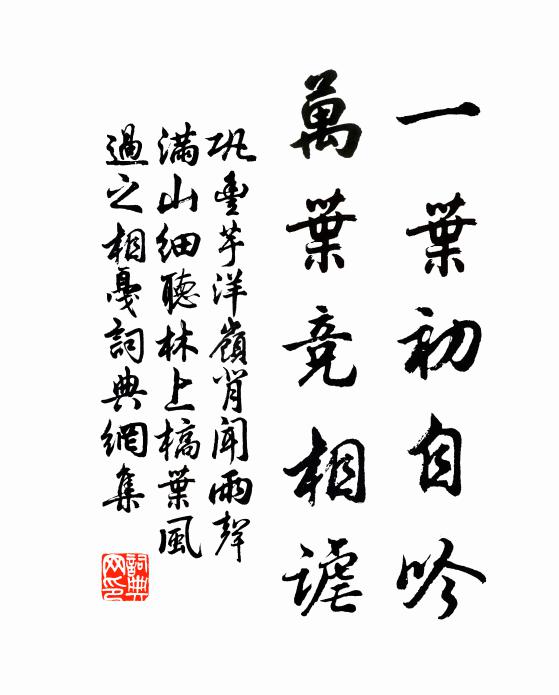 一葉初自吟
萬葉竞相謔
巩豊芋洋嶺背聞雨聲
滿山細聽林上槁葉風
過之相戛詞典網集
詞典网印